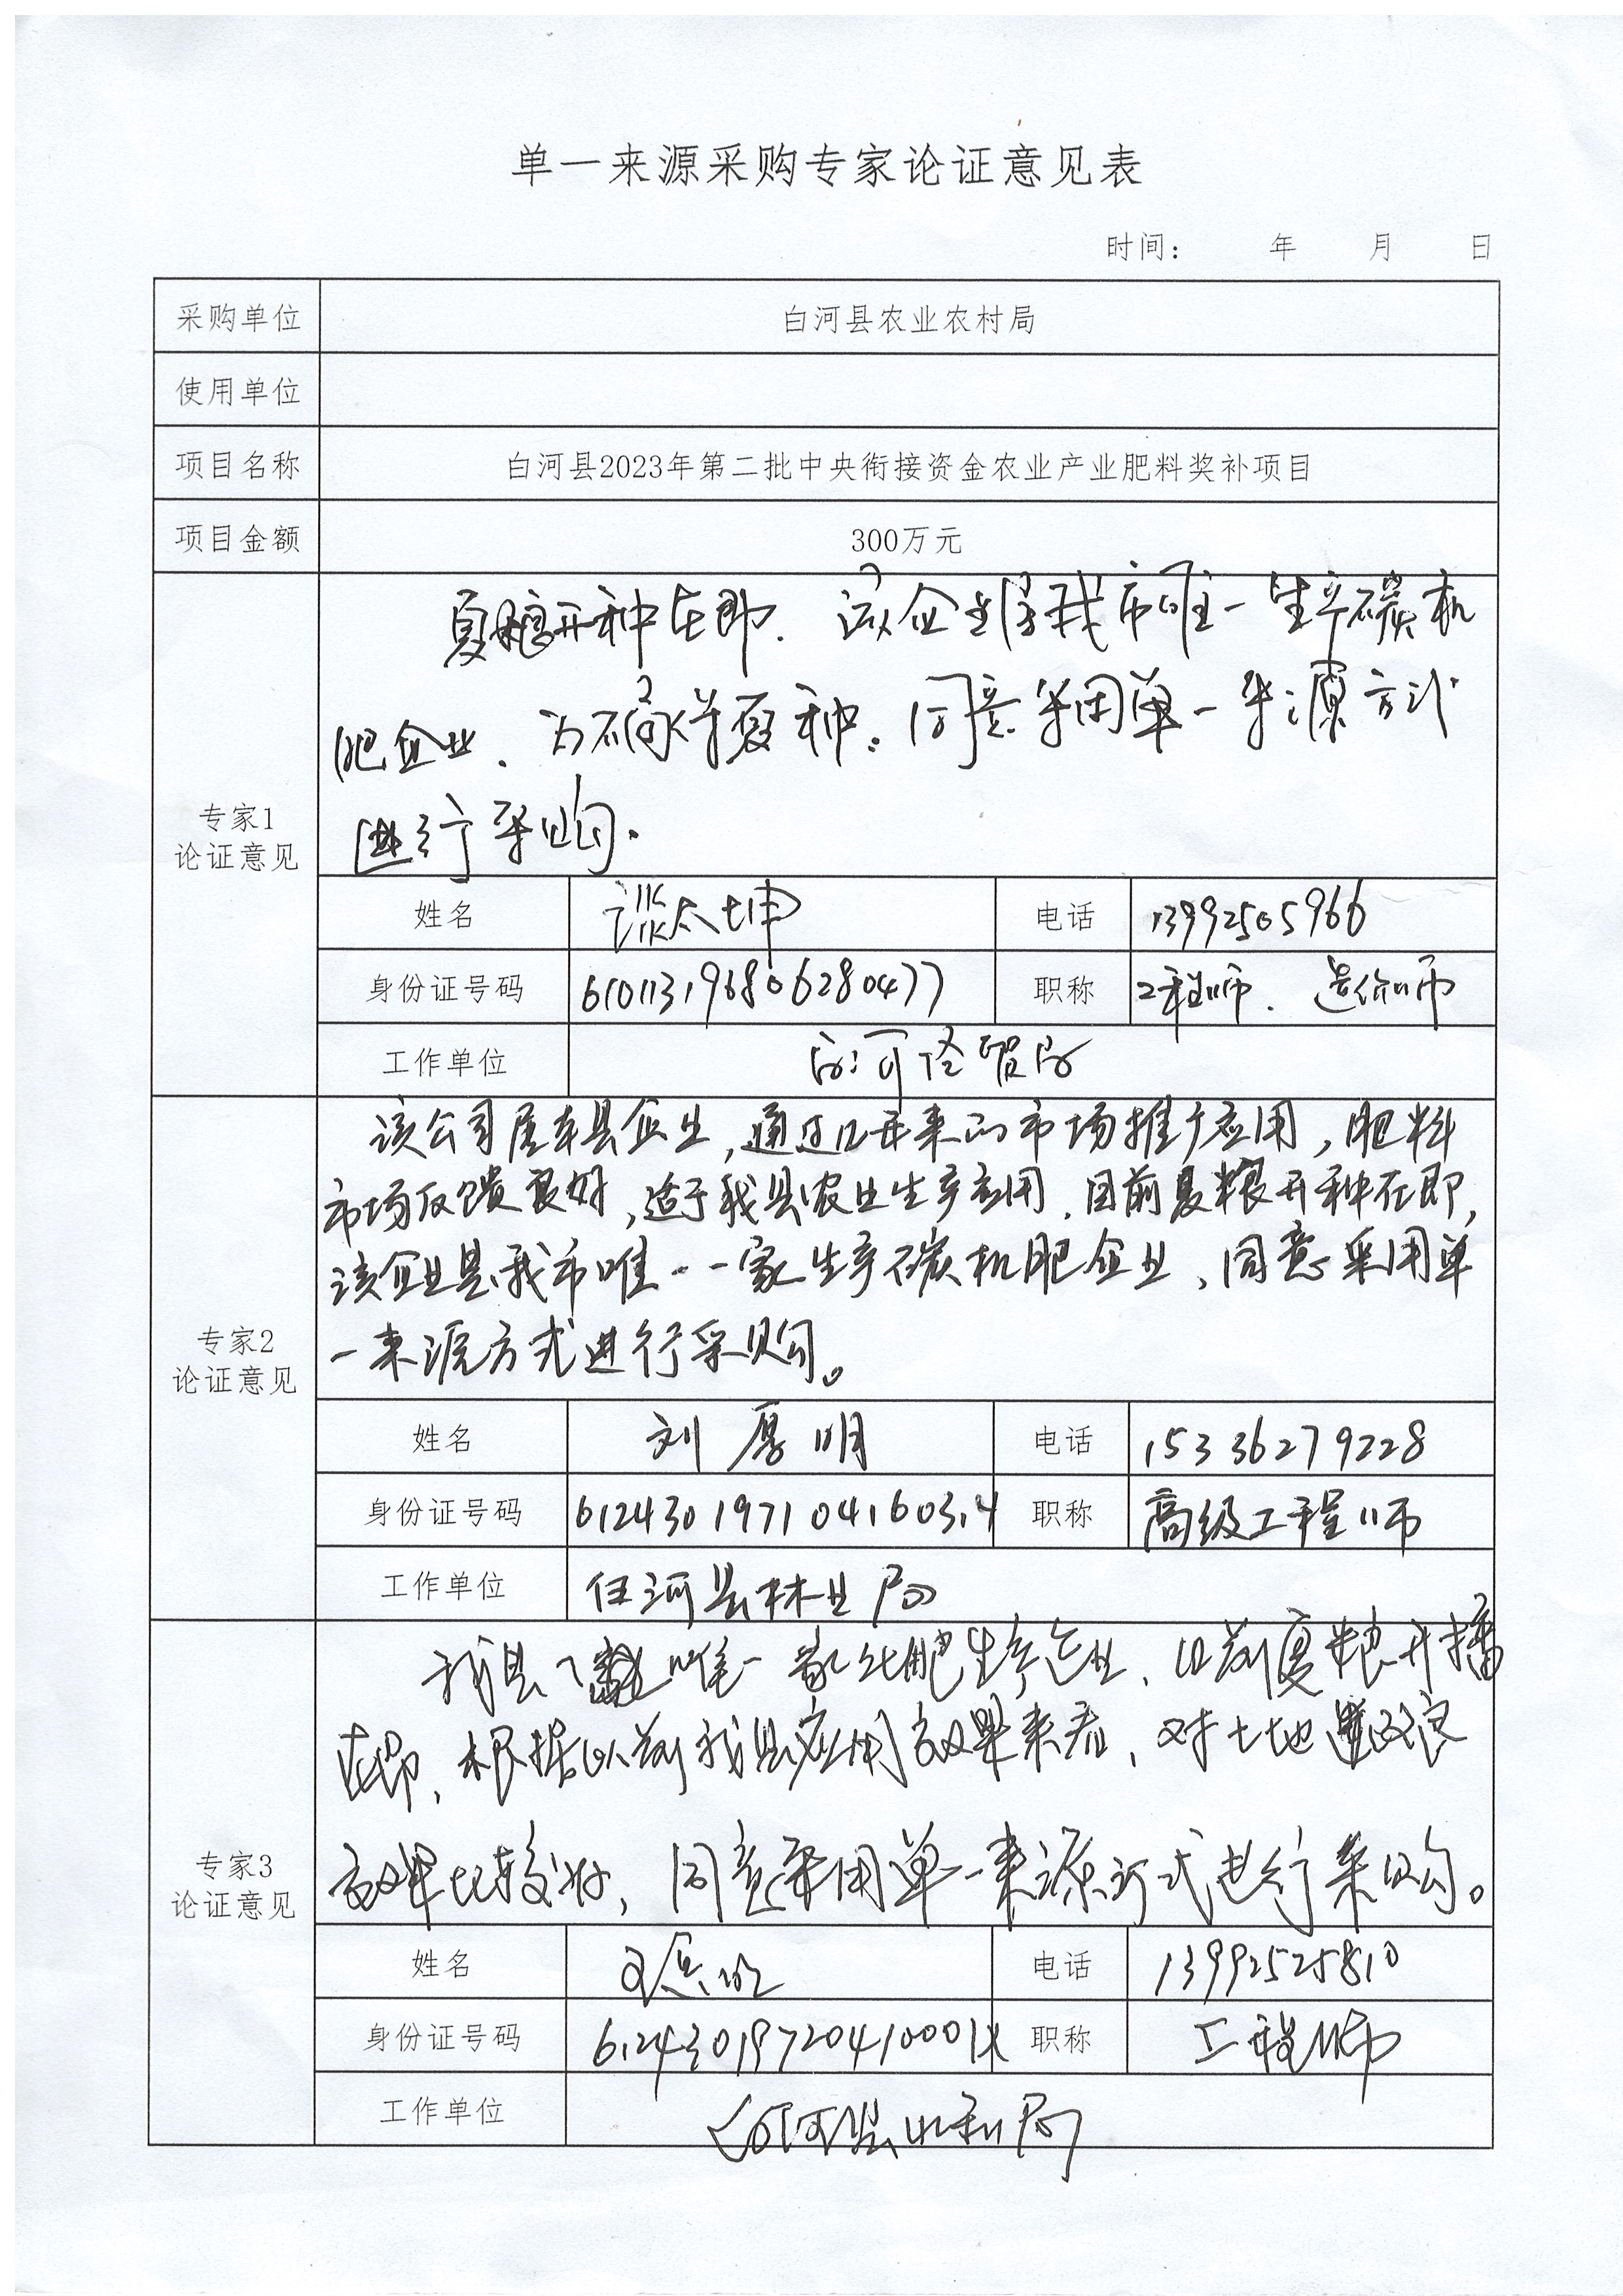 单一来源采购专家论证意见表
时间： 年 月 日
采购单位 白河县农业农村局
使用单位
项目名称 白河县2023年第二批中央衔接资金农业产业肥料奖补项目
项目金额 300万元
专家1
论证意见
夏粮开种在即．该企业是我市唯一生产碳机
肥企业．为不影响夏种．同意采用单一来源方式
进行采购．
姓名 谈太坤 电话 13992505966
身份证号码 610113196806280477 职称 工程师．造价师
工作单位 白河经贸局
专家2
论证意见
该公司属本县企业，通过几年来的市场推广应用，肥料
市场反馈良好，适于我县农业生产应用．目前夏粮开种在即，
该企业是我市唯一一家生产碳机肥企业、同意采用单
一来源方式进行采购。
姓名 刘厚明 电话 15336279228
身份证号码 612430197104160314 职称 高级工程师
工作单位 白河县林业局
专家3
论证意见
我县唯一一家化肥生产企业、目前夏粮开播
在即，根据以前我县应用效果来看，对土地改良
效果比较好，同意采用单一来源方式进行采购。
姓名 电话 13992525810
身份证号码 61243019720410001X 职称 工程师
工作单位 白河县水利局